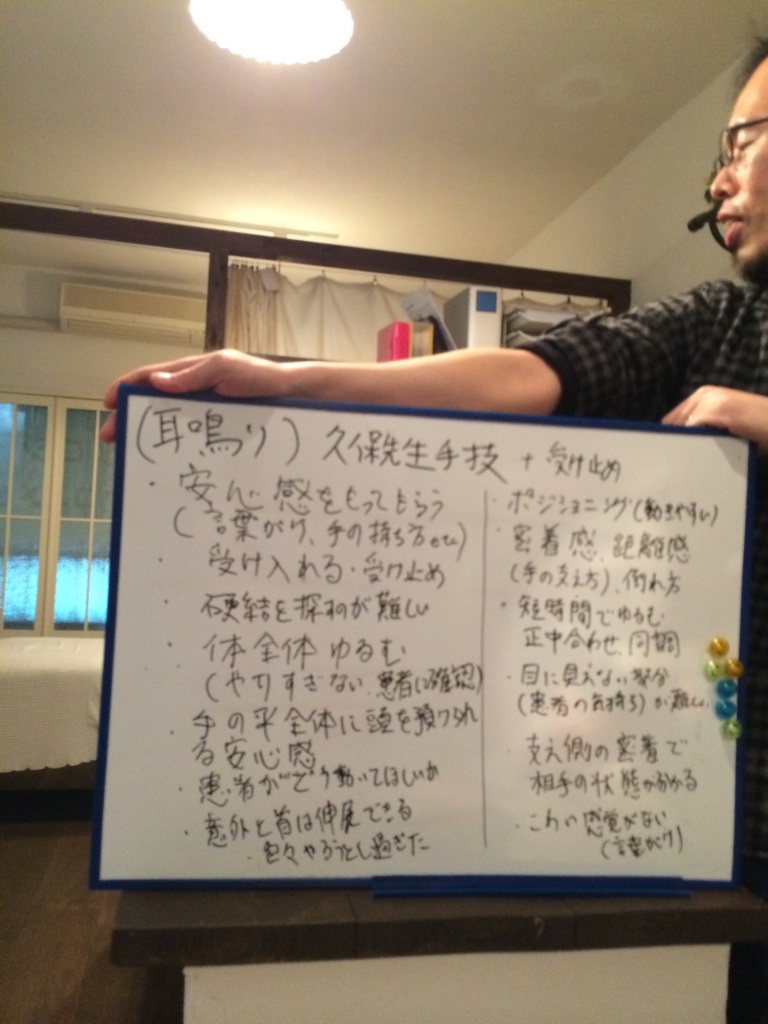 (耳鳴り) 久保先生手技 + 受け止め
・安心感をもってもらう
(言葉がけ、手の持ち方etc)
・受け入れる・受け止め
・硬結を探すのが難しい
・体全体ゆるむ
(やりすぎない、患者に確認)
・手の平全体に頭を預けられ
る安心感
・患者がどう動いてほしいか
・意外と首は伸展できる
・色々やろうとし過ぎた
・ポジショニング(動きやすい)
・密着感、距離感
(手の支え方)、倒れ方
・短時間でゆるむ
正中合わせ、同調
・目に見えない部分
(患者の気持ち)が難しい
・支え側の密着で
相手の状態が分かる
・こわい感覚がない
(言葉がけ)